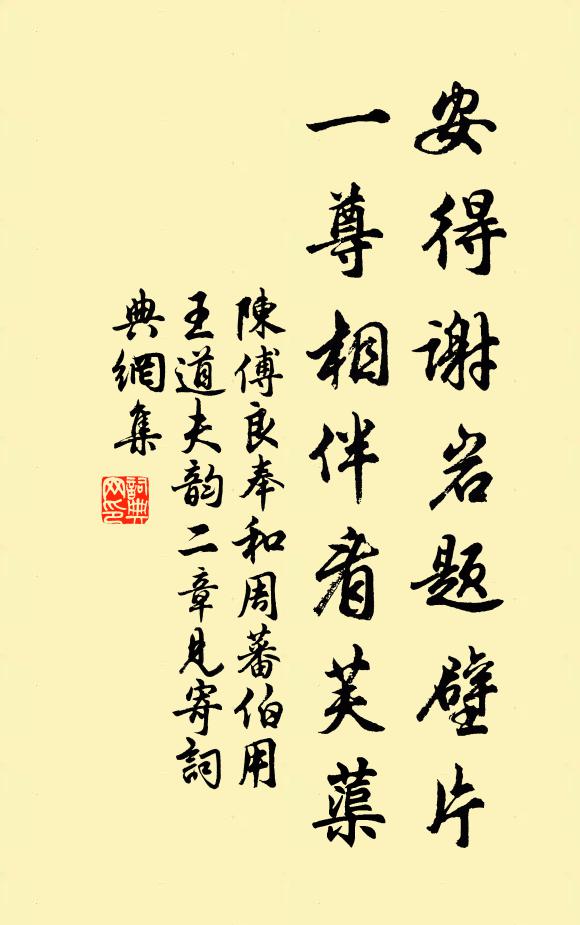 安得谢岩题壁片
一尊相伴看芙蕖
陳傅良奉和周蕃伯用
王道夫韵二章見寄詞
典網集
詞典网印